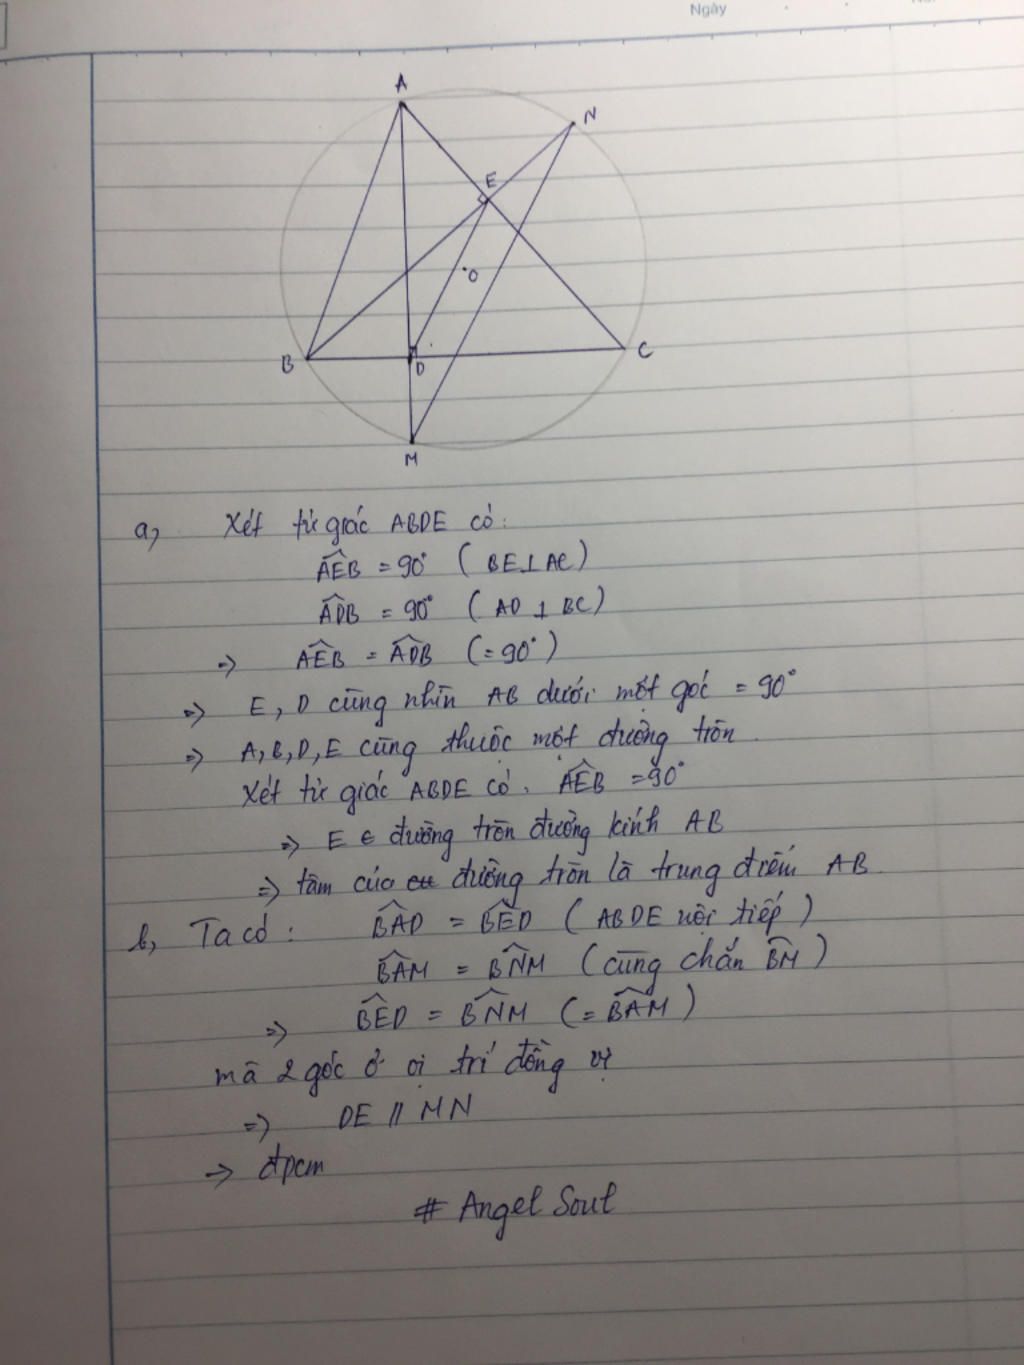 Ngày
A
N
E
O
B
D
C
M
a, Xét tứ giác ABDE có:
AEB = 90° ( BE⊥AC)
ADB = 90° ( AD ⊥ BC)
=> AEB = ADB (=90°)
=> E, D cùng nhìn AB dưới một góc = 90°
=> A,B,D,E cùng thuộc một đường tròn.
Xét tứ giác ABDE có, AEB =90°
=> E ∈ đường tròn đường kính AB
=> tâm của đường tròn là trung điểm AB.
b, Ta có: BAD = BED ( ABDE nội tiếp )
BAM = BNM (cùng chắn BM )
=> BED = BNM (= BAM )
mà 2 góc ở vị trí đồng vị
=> DE // MN
=> đpcm
# Angel Soul